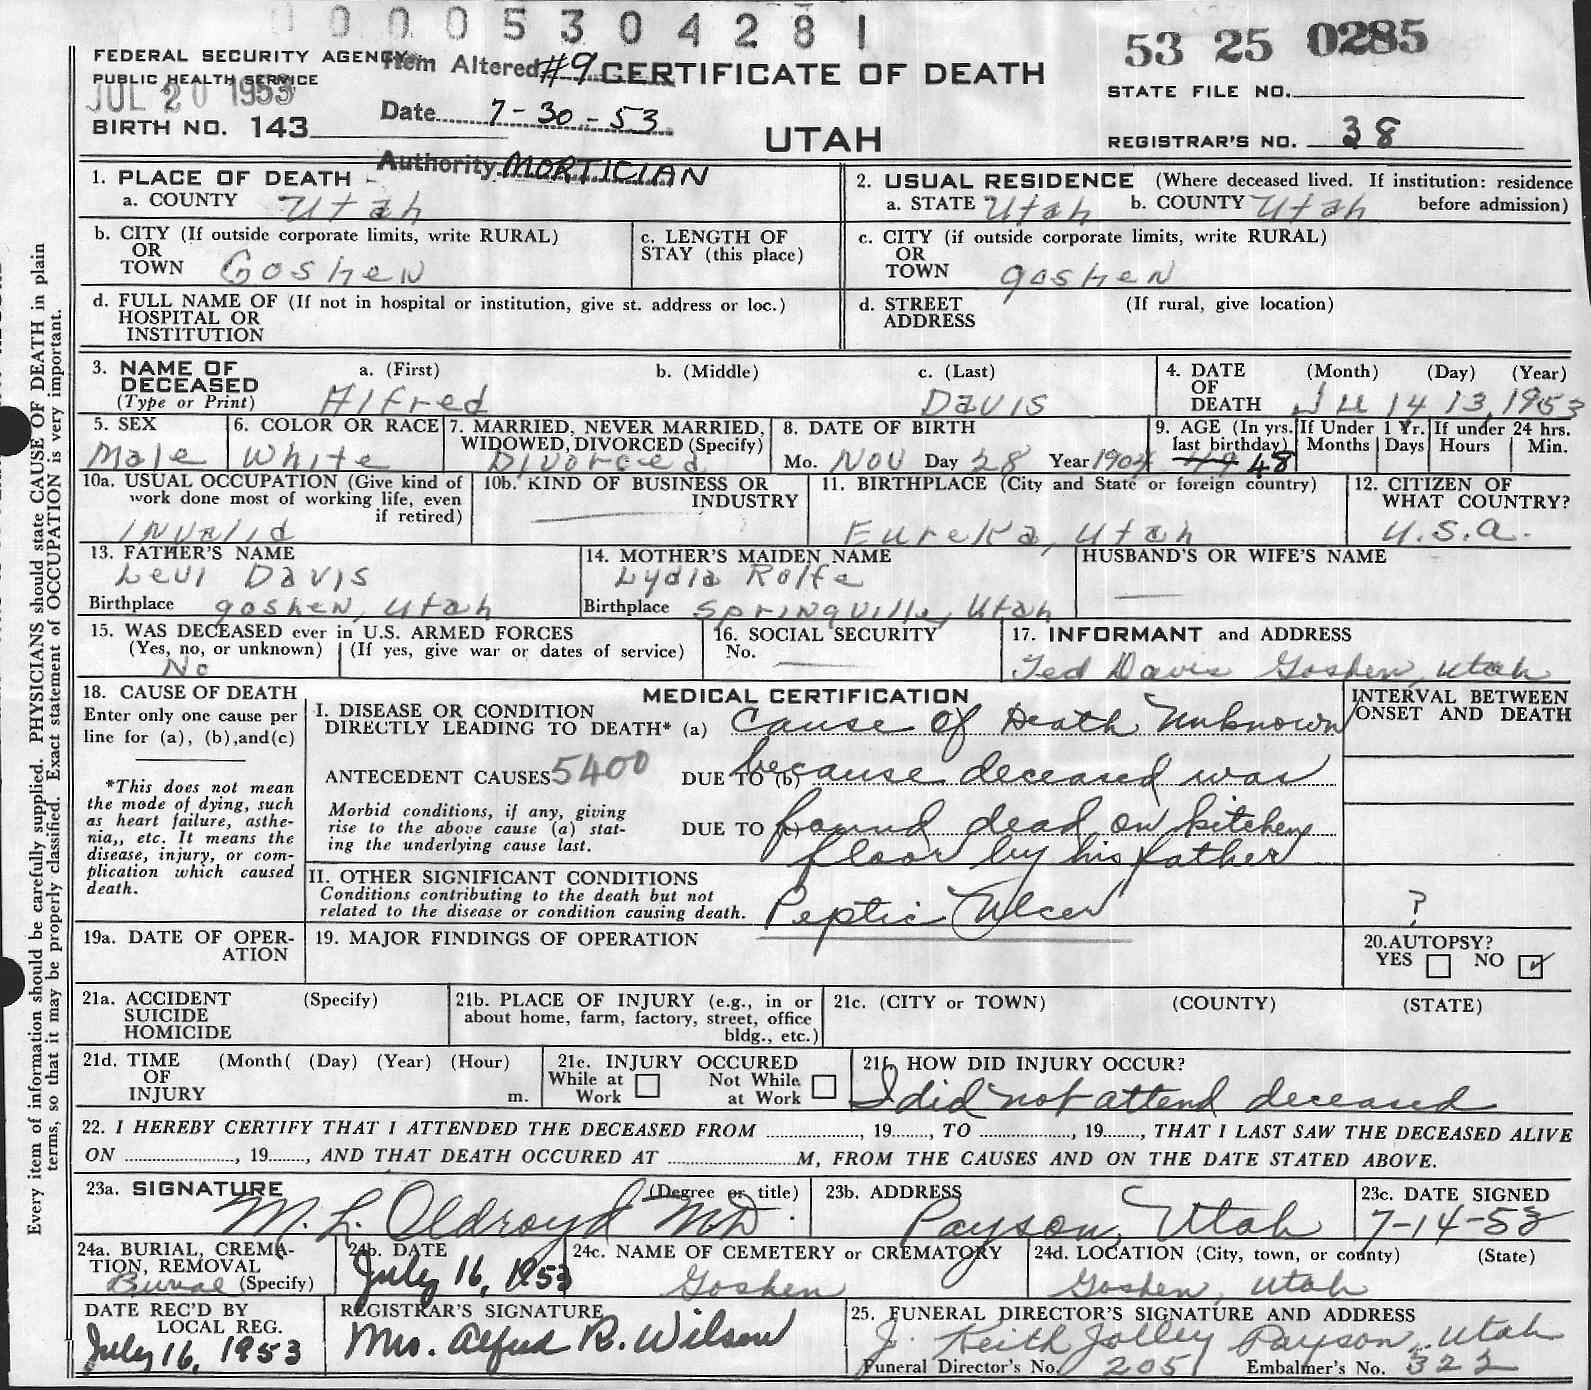 0 0 0 0 5 3 0 4 2 8 1
53 25 0285
FEDERAL SECURITY AGENCY
PUBLIC HEALTH SERVICE
JUL 20 1953
BIRTH NO. 143
Item Altered #9
Date 7-30-53
Authority MORTICIAN
CERTIFICATE OF DEATH
UTAH
STATE FILE NO.
REGISTRAR'S NO. 38
1. PLACE OF DEATH
a. COUNTY Utah
2. USUAL RESIDENCE (Where deceased lived. If institution: residence
a. STATE Utah b. COUNTY Utah before admission)
b. CITY (If outside corporate limits, write RURAL)
OR
TOWN Goshen
c. LENGTH OF
STAY (this place)
c. CITY (if outside corporate limits, write RURAL)
OR
TOWN goshen
d. FULL NAME OF (If not in hospital or institution, give st. address or loc.)
HOSPITAL OR
INSTITUTION
d. STREET (If rural, give location)
ADDRESS
3. NAME OF a. (First) b. (Middle) c. (Last)
DECEASED
(Type or Print) Alfred Davis
4. DATE (Month) (Day) (Year)
OF
DEATH July 13, 1953
5. SEX
Male
6. COLOR OR RACE
White
7. MARRIED, NEVER MARRIED,
WIDOWED, DIVORCED (Specify)
Divorced
8. DATE OF BIRTH
Mo. Nov Day 28 Year 1904
9. AGE (In yrs. If Under 1 Yr. If under 24 hrs.
last birthday) Months Days Hours Min.
49 48
10a. USUAL OCCUPATION (Give kind of
work done most of working life, even
if retired)
Invalid
10b. KIND OF BUSINESS OR
INDUSTRY
11. BIRTHPLACE (City and State or foreign country)
Eureka, Utah
12. CITIZEN OF
WHAT COUNTRY?
U.S.A.
13. FATHER'S NAME
Levi Davis
Birthplace goshen, Utah
14. MOTHER'S MAIDEN NAME
Lydia Rolfe
Birthplace Springville, Utah
HUSBAND'S OR WIFE'S NAME
15. WAS DECEASED ever in U.S. ARMED FORCES
(Yes, no, or unknown) (If yes, give war or dates of service)
No
16. SOCIAL SECURITY
No.
17. INFORMANT and ADDRESS
Ted Davis Goshen, Utah
18. CAUSE OF DEATH
Enter only one cause per
line for (a), (b),and(c)
*This does not mean
the mode of dying, such
as heart failure, asthe-
nia,, etc. It means the
disease, injury, or com-
plication which caused
death.
MEDICAL CERTIFICATION
I. DISEASE OR CONDITION
DIRECTLY LEADING TO DEATH* (a) Cause of Death Unknown
ANTECEDENT CAUSES 5400 DUE TO (b) because deceased was
Morbid conditions, if any, giving
rise to the above cause (a) stat-
ing the underlying cause last.
DUE TO found dead on kitchen
floor by his father
II. OTHER SIGNIFICANT CONDITIONS
Conditions contributing to the death but not
related to the disease or condition causing death. Peptic Ulcer
INTERVAL BETWEEN
ONSET AND DEATH
?
19a. DATE OF OPER-
ATION
19. MAJOR FINDINGS OF OPERATION
20.AUTOPSY?
YES NO ✓
21a. ACCIDENT (Specify)
SUICIDE
HOMICIDE
21b. PLACE OF INJURY (e.g., in or
about home, farm, factory, street, office
bldg., etc.)
21c. (CITY or TOWN) (COUNTY) (STATE)
21d. TIME (Month( (Day) (Year) (Hour)
OF
INJURY m.
21e. INJURY OCCURED
While at Not While
Work at Work
21f. HOW DID INJURY OCCUR?
I did not attend deceased
22. I HEREBY CERTIFY THAT I ATTENDED THE DECEASED FROM ..............., 19......., TO ..............., 19......., THAT I LAST SAW THE DECEASED ALIVE
ON ..............., 19......., AND THAT DEATH OCCURED AT ...............M, FROM THE CAUSES AND ON THE DATE STATED ABOVE.
23a. SIGNATURE (Degree or title)
M. L. Oldroyd MD.
23b. ADDRESS
Payson, Utah
23c. DATE SIGNED
7-14-53
24a. BURIAL, CREMA-
TION, REMOVAL
Burial (Specify)
24b. DATE
July 16, 1953
24c. NAME OF CEMETERY or CREMATORY
Goshen
24d. LOCATION (City, town, or county) (State)
Goshen, Utah
DATE REC'D BY
LOCAL REG.
July 16, 1953
REGISTRAR'S SIGNATURE
Mrs. Alfred R. Wilson
25. FUNERAL DIRECTOR'S SIGNATURE AND ADDRESS
J. Keith Jolley Payson, Utah
Funeral Director's No. 205 Embalmer's No. 322
Every item of information should be carefully supplied. PHYSICIANS should state CAUSE OF DEATH in plain
terms, so that it may be properly classified. Exact statement of OCCUPATION is very important.